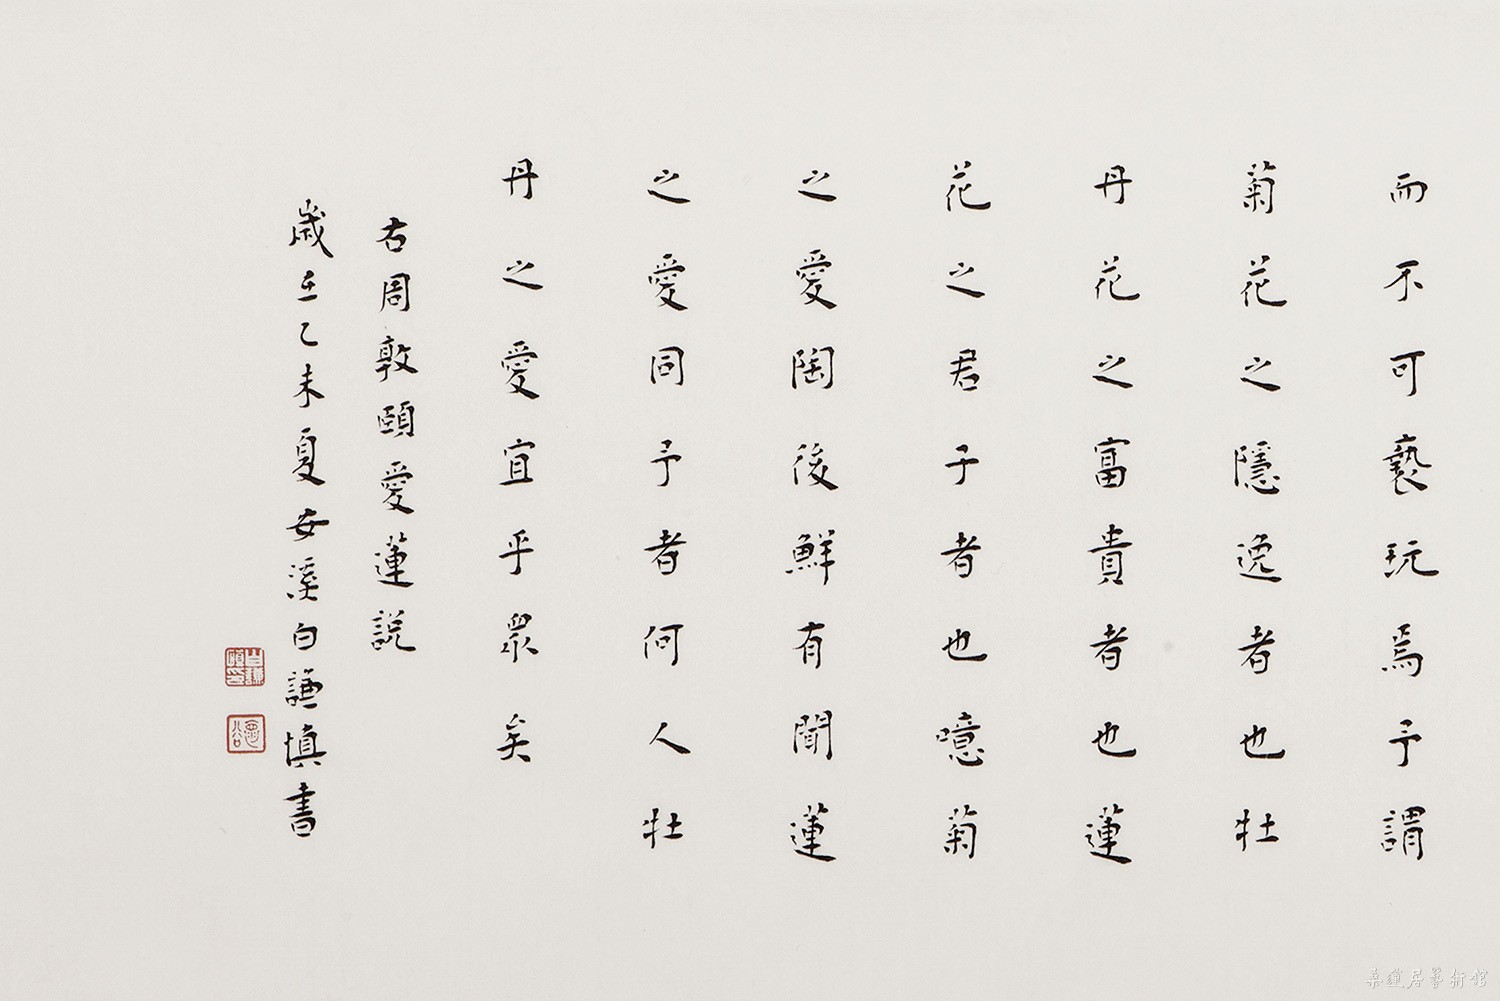 而不可褻玩焉予謂
菊花之隱逸者也牡
丹花之富貴者也蓮
花之君子者也噫菊
之愛陶後鮮有聞蓮
之愛同予者何人牡
丹之愛宜乎眾矣
右周敦頤愛蓮説
歲在乙未夏安溪白謙慎書
白謙慎印
桑蓮居藝術館